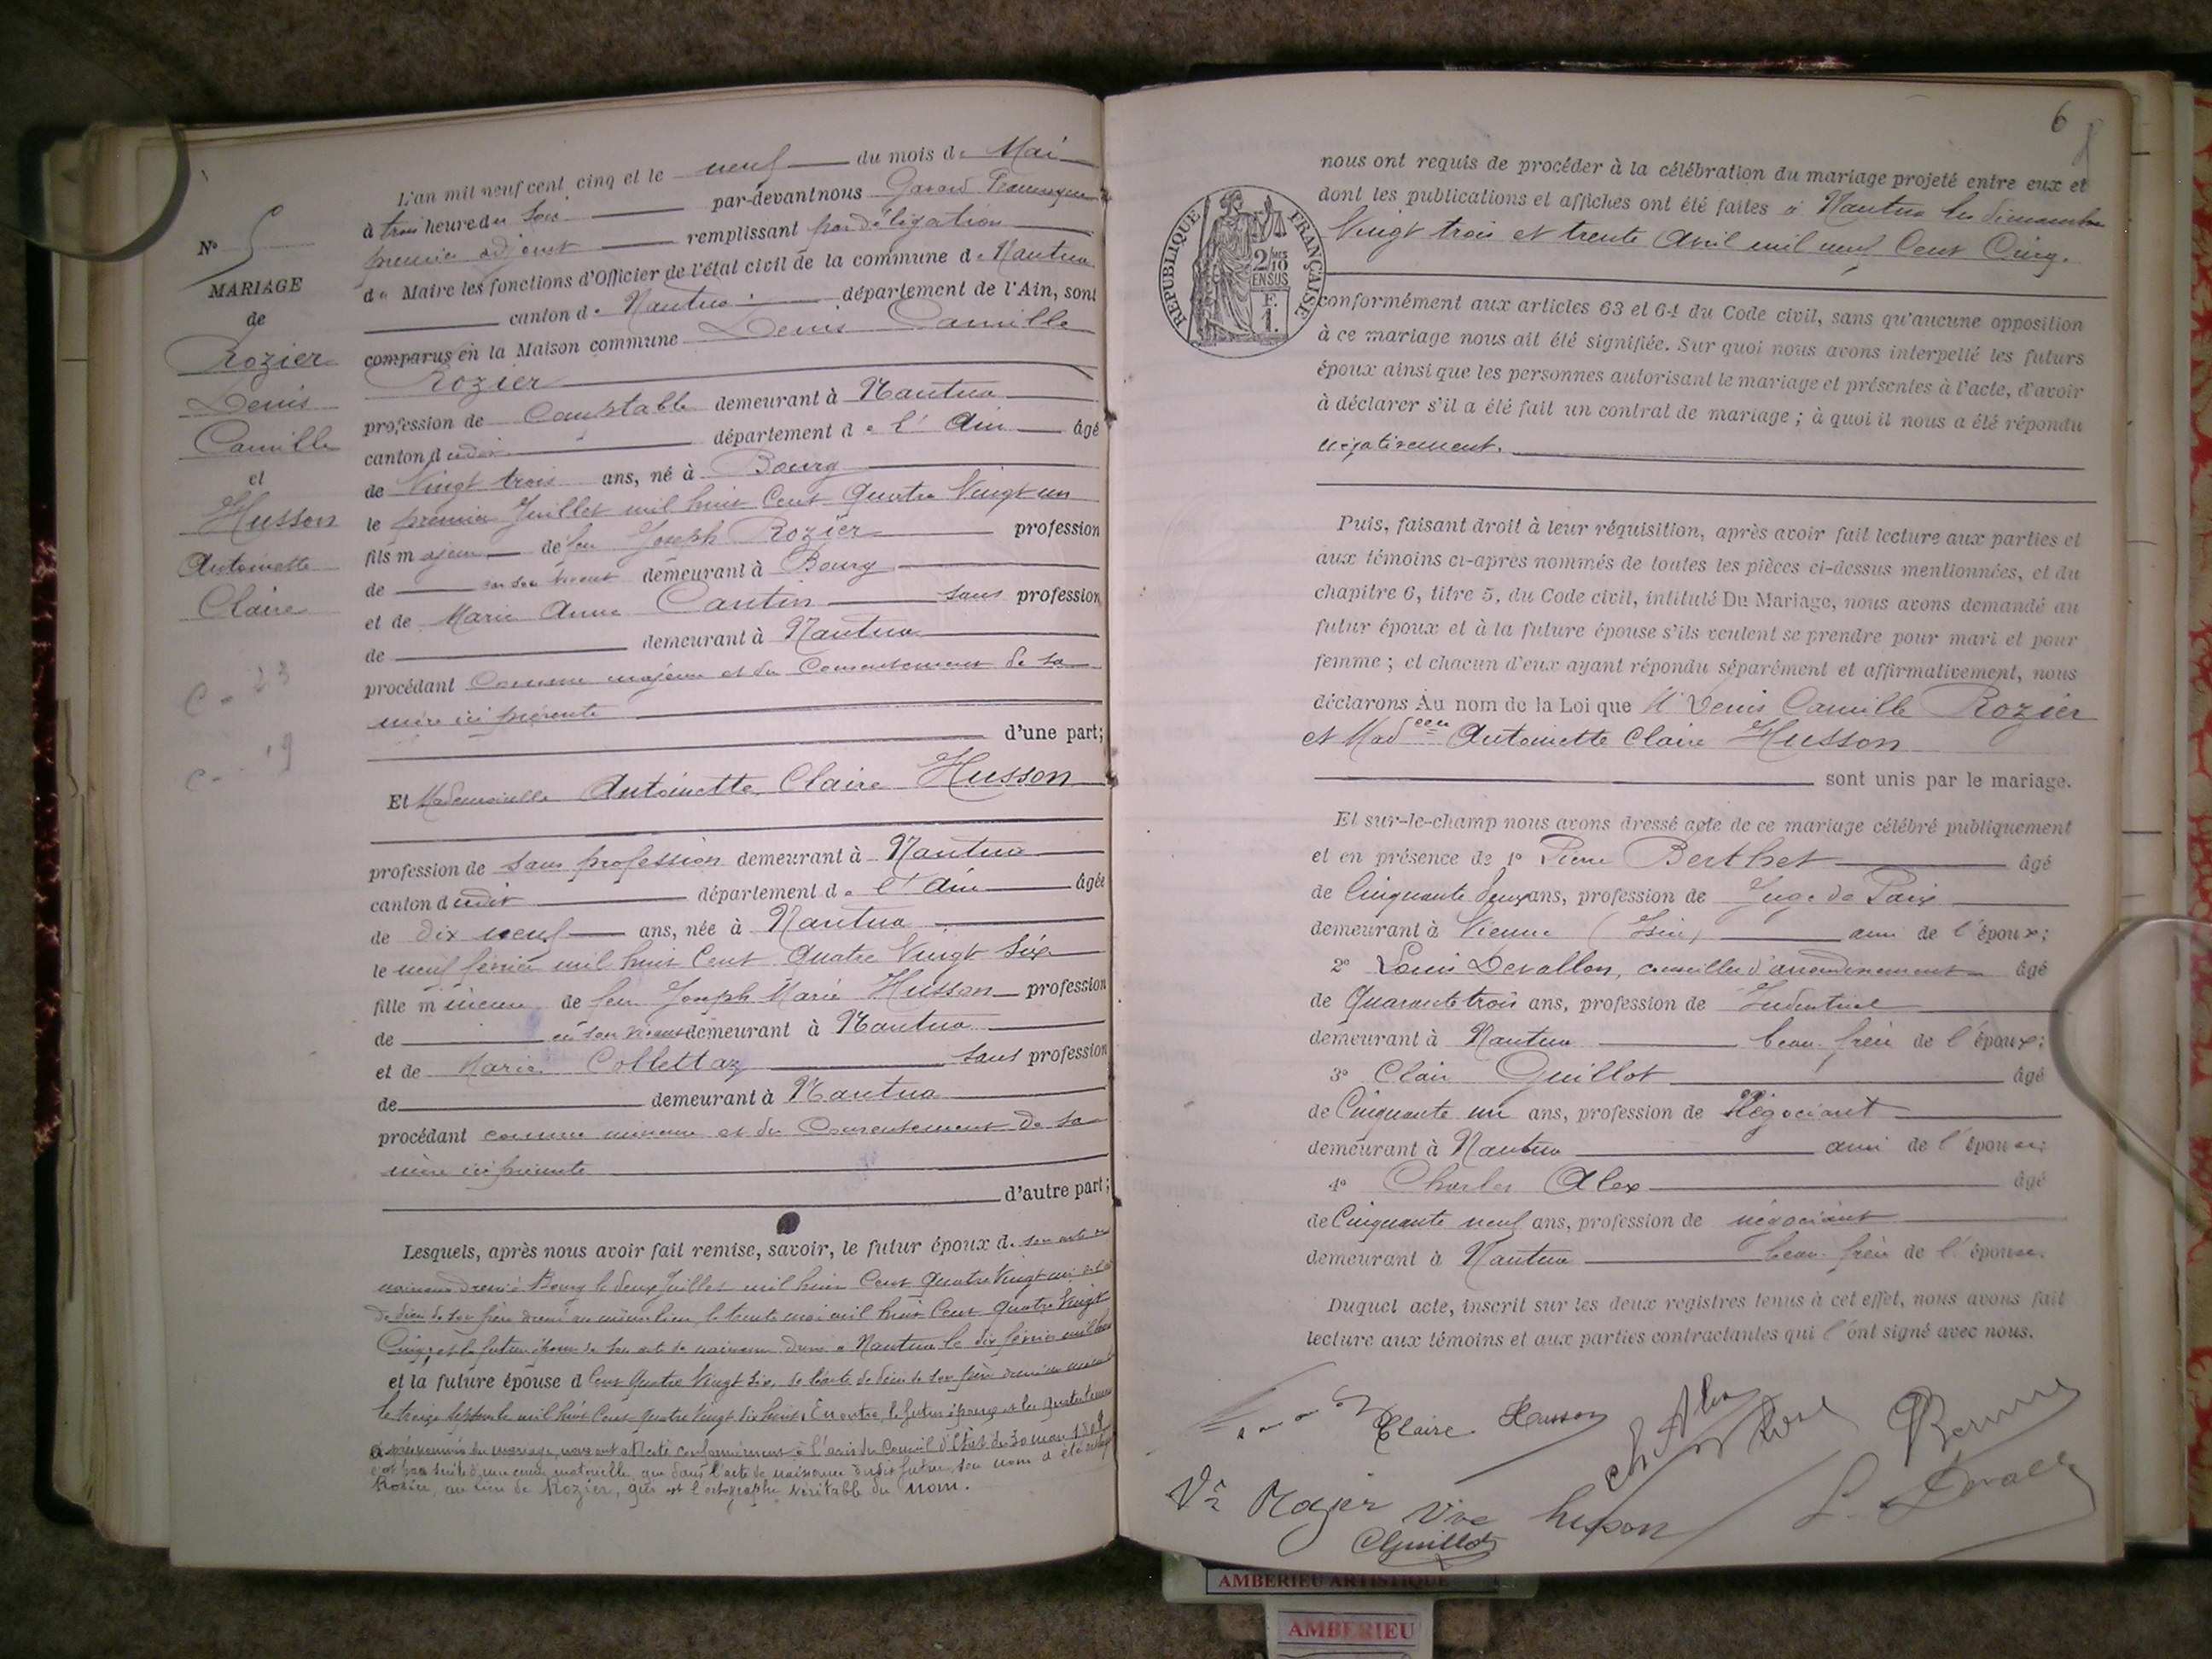 N° 5
MARIAGE
de
Rozier
Denis
Camille
et
Husson
Antoinette
Claire
C - 23
C - 19
L'an mil neuf cent cinq et le neuf du mois de Mai
à trois heure du soir par-devant nous
premier adjoint remplissant par délégation
de Maire les fonctions d'Officier de l'état civil de la commune de Nantua
canton de Nantua département de l'Ain, sont
comparus en la Maison commune Denis Camille
Rozier
profession de Comptable demeurant à Nantua
canton dudit département de l'Ain âgé
de Vingt trois ans, né à Bourg
le premier Juillet mil huit Cent Quatre Vingt un
fils majeur de feu Joseph Rozier profession
de en son vivant demeurant à Bourg
et de Marie Anne Cantin sans profession
de demeurant à Nantua
procédant Comme majeur et du Consentement de sa
mère ici présente
d'une part;
Et Mademoiselle Antoinette Claire Husson
profession de sans profession demeurant à Nantua
canton dudit département de l'Ain âgée
de dix neuf ans, née à Nantua
le neuf février mil huit Cent Quatre Vingt Six
fille mineure de feu Joseph Marie Husson profession
de en son vivant demeurant à Nantua
et de Marie Collettaz sans profession
de demeurant à Nantua
procédant comme mineure et du Consentement de sa
mère ici présente
d'autre part;
Lesquels, après nous avoir fait remise, savoir, le futur époux de son acte de
naissance dressé à Bourg le deux Juillet mil huit Cent Quatre Vingt un
de décès de son père dressé au même lieu le trente mai mil huit Cent Quatre Vingt
Cinq, et la future épouse de son acte de naissance dressé à Nantua le dix février mil huit
et la future épouse d Cent Quatre Vingt Six, de l'acte de décès de son père
le treize septembre mil huit Cent Quatre Vingt dix huit. En outre, le futur époux et les quatre témoins
du mariage, nous ont attesté conformément à l'avis du Conseil d'Etat du 30 mars 1808
que dans l'acte de naissance dudit futur, son nom a été
Rosier, au lieu de Rozier, qui est l'orthographe véritable du nom.
6
nous ont requis de procéder à la célébration du mariage projeté entre eux et
dont les publications et affiches ont été faites à Nantua les dimanches
Vingt trois et trente Avril mil neuf Cent Cinq.
RÉPUBLIQUE FRANÇAISE
2/10
EN SUS
F.
1.
conformément aux articles 63 et 64 du Code civil, sans qu'aucune opposition
à ce mariage nous ait été signifiée. Sur quoi nous avons interpellé les futurs
époux ainsi que les personnes autorisant le mariage et présentes à l'acte, d'avoir
à déclarer s'il a été fait un contrat de mariage ; à quoi il nous a été répondu
négativement.
Puis, faisant droit à leur réquisition, après avoir fait lecture aux parties et
aux témoins ci-après nommés de toutes les pièces ci-dessus mentionnées, et du
chapitre 6, titre 5, du Code civil, intitulé Du Mariage, nous avons demandé au
futur époux et à la future épouse s'ils veulent se prendre pour mari et pour
femme ; et chacun d'eux ayant répondu séparément et affirmativement, nous
déclarons Au nom de la Loi que Mr Denis Camille Rozier
et Madelle Antoinette Claire Husson
sont unis par le mariage.
Et sur-le-champ nous avons dressé acte de ce mariage célébré publiquement
et en présence de 1° Pierre Berthet âgé
de Cinquante deux ans, profession de Juge de Paix
demeurant à Vienne (Isère) ami de l'époux;
2° Louis Devallon, conseiller d'arrondissement âgé
de Quarante trois ans, profession de Industriel
demeurant à Nantua beau-frère de l'époux;
3° Clair Guillot âgé
de Cinquante un ans, profession de Négociant
demeurant à Nantua ami de l'épouse;
4° Charles Alex âgé
de Cinquante neuf ans, profession de négociant
demeurant à Nantua beau-frère de l'épouse.
Duquel acte, inscrit sur les deux registres tenus à cet effet, nous avons fait
lecture aux témoins et aux parties contractantes qui l'ont signé avec nous.
Claire Husson Ch Alex
Vve Rozier Vve husson L. Devallon
CGuillot
AMBERIEU ARTISTIQUE
AMBERIEU